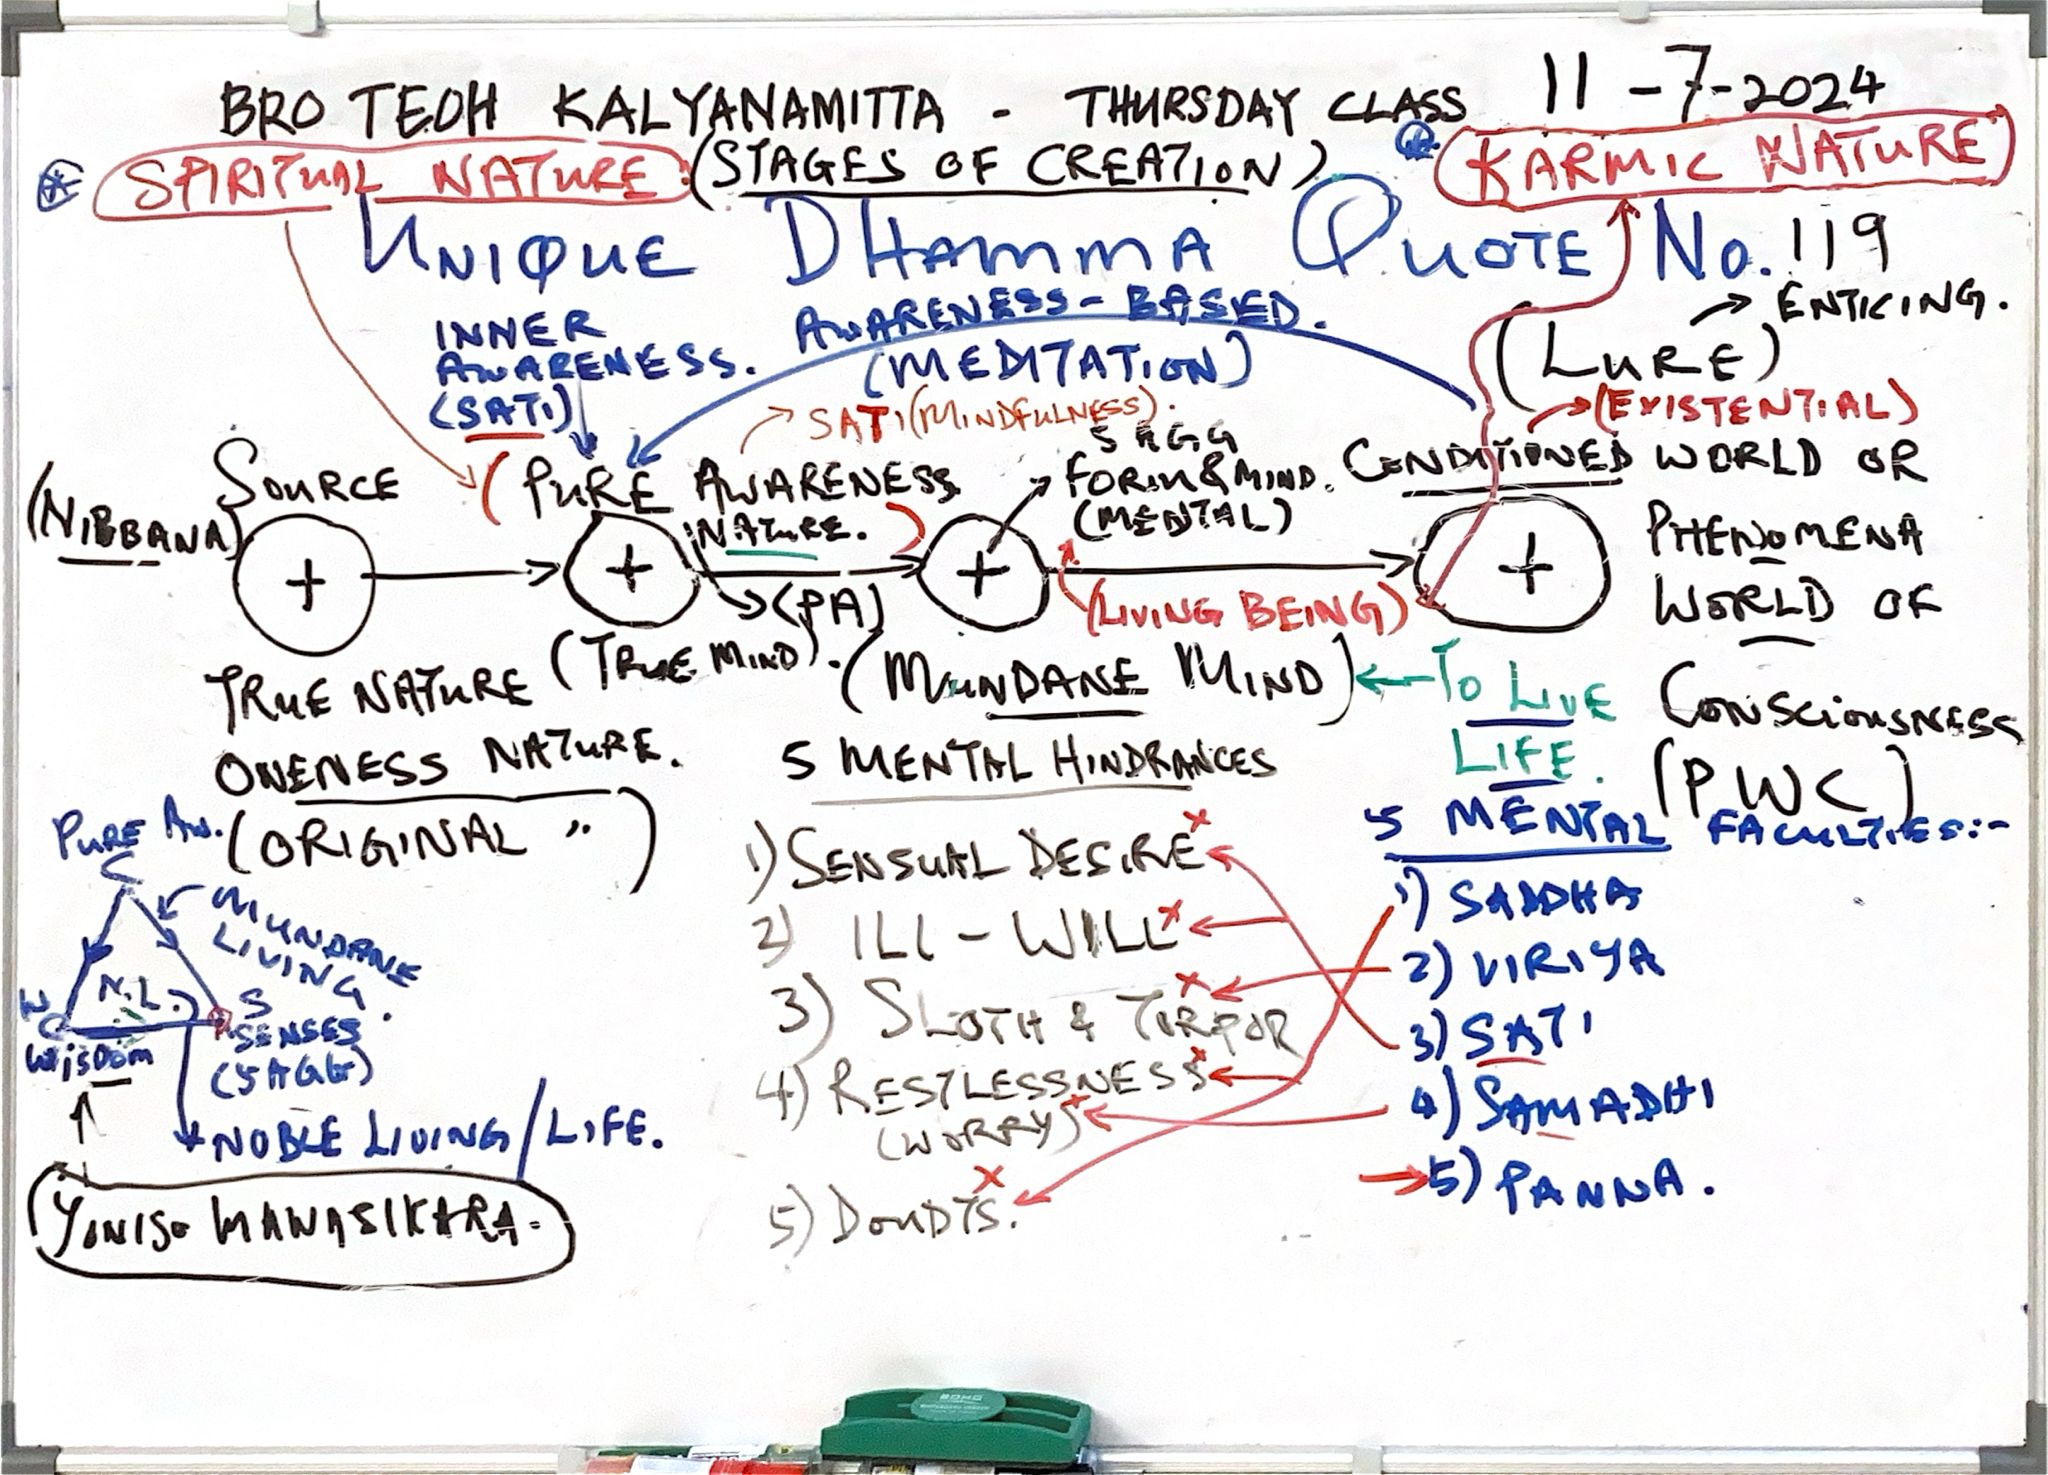 BRO TEOH KALYANAMITTA - THURSDAY CLASS 11-7-2024
SPIRITUAL NATURE : (STAGES OF CREATION) KARMIC NATURE
UNIQUE DHAMMA QUOTE No. 119
INNER AWARENESS. (SATI)
AWARENESS-BASED.
(MEDITATION)
(LURE) → ENTICING.
→ (EXISTENTIAL)
→ SATI (MINDFULNESS).
(NIBBANA) SOURCE
(PURE AWARENESS NATURE.)
5 AGG
FORM & MIND.
(MENTAL)
CONDITIONED WORLD OR
PHENOMENA
WORLD OF
CONSCIOUSNESS
(PWC)
+ + + +
→ (PA)
(LIVING BEING)
TRUE NATURE
ONENESS NATURE.
(ORIGINAL ")
(TRUE MIND).
(MUNDANE MIND) ← TO LIVE
LIFE.
5 MENTAL HINDRANCES
1) SENSUAL DESIRE x
2) ILL - WILL x
3) SLOTH & TORPOR x
4) RESTLESSNESS x
(WORRY) x
5) DOUDTS. x
5 MENTAL FACULTIES:-
1) SADDHA
2) VIRIYA
3) SATI
4) SAMADHI
→ 5) PANNA.
PURE AW.
C
MUNDANE
LIVING.
N.L.
W
WISDOM
S
SENSES
(5 AGG)
NOBLE LIVING / LIFE.
YONISO MANASIKARA.